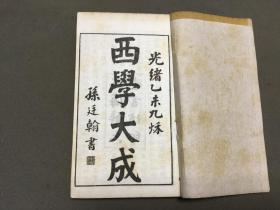 光緒乙未九秋
西學大成
孫廷翰書